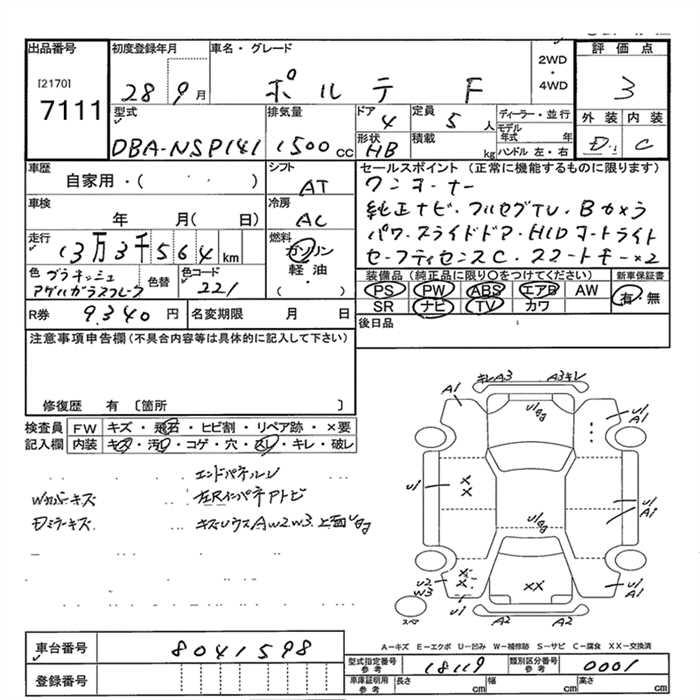 出品番号
[2170]
7111
初度登録年月
28 9月
車名・グレード
ポルテ F
2WD
・
4WD
評価点
3
型式
DBA-NSP141
排気量
1500 CC
ドア
4
定員
5 人
形状
HB
積載
kg
ディーラー・並行
モデル年式 年
ハンドル 左・右
外装 内装
D C
車歴
自家用・( )
シフト
AT
車検
年 月( 日)
冷房
AC
走行
13万3千564 km
燃料
ガソリン
軽油
( )
色
色替
色コード
221
R券 9.340 円
名変期限 月 日
セールスポイント (正常に機能するものに限ります)
ワンオーナー
純正ナビ・フルセグTV・Bカメラ
パワースライドドア・HIDオートライト
セーフティセンスC・スマートキー×2
装備品 (純正品に限り○をつけてください)
新車保証書
PS PW ABS エアB AW
SR ナビ TV カワ
有・無
後日品
注意事項申告欄(不具合内容等は具体的に記入して下さい)
修復歴 有 〔箇所 〕
検査員記入欄
FW キズ・飛石・ヒビ割・リペア跡・×要
内装 キズ・汚れ・コゲ・穴・スレ・キレ・破レ
エンドパネルU
Wカバーキズ
左Rインパネアトビ
Dミラーキズ
A1
キレA3
A3キレ
Ug
U1
A1
U1
×
×
U1
A1
Ug
U2
W3
U1
××
U1
A1
スペア
A2
A2
A-キズ E-エクボ U-凹み W-補修跡 S-サビ C-腐食 XX-交換済
車台番号 8041598
登録番号
型式指定番号
参考
18119
類別区分番号
参考
0001
車庫証明用
参考
長さ cm
幅 cm
高さ cm